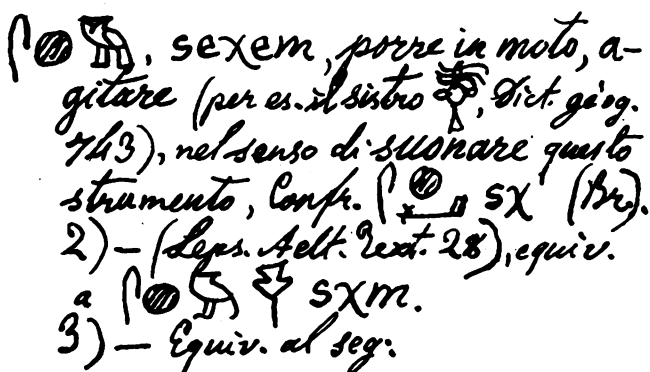 𓋴𓐍𓅓, seχem, porre in moto, a-
gitare (per es. il sistro, Dict. géog.
743), nel senso di suonare questo
strumento, Confr. 𓋴𓐍 sχ (Br.).
2) — (Leps. Aelt. Text. 28), equiv.
a 𓋴𓐍𓅓 sχm.
3) — Equiv. al seg: